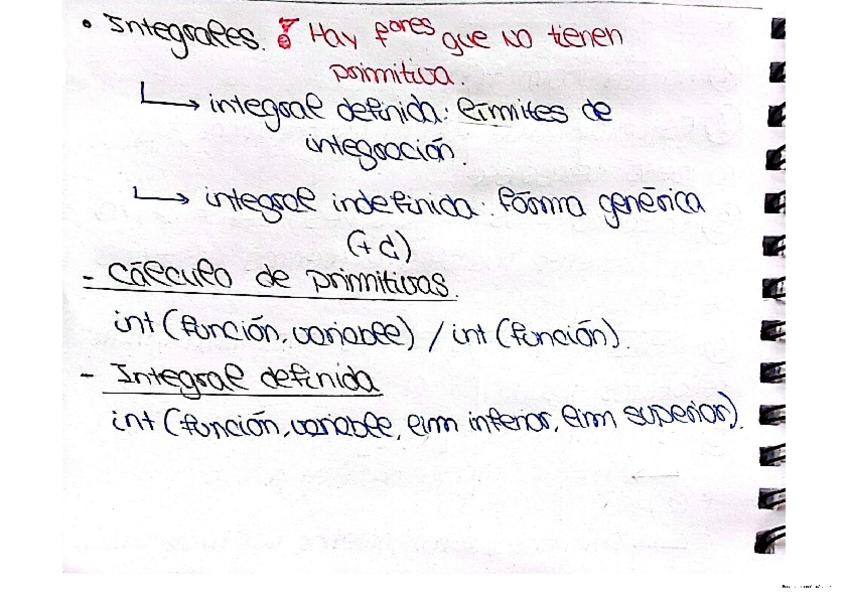 • Integrales. ! Hay f. ones que NO tienen
primitiva.
↳ integral definida: límites de
integración.
↳ integral indefinida: forma genérica
(+ C)
- Cálculo de primitivas.
int (función, variable) / int (función).
- Integral definida
int (función, variable, lim inferior, lim superior).